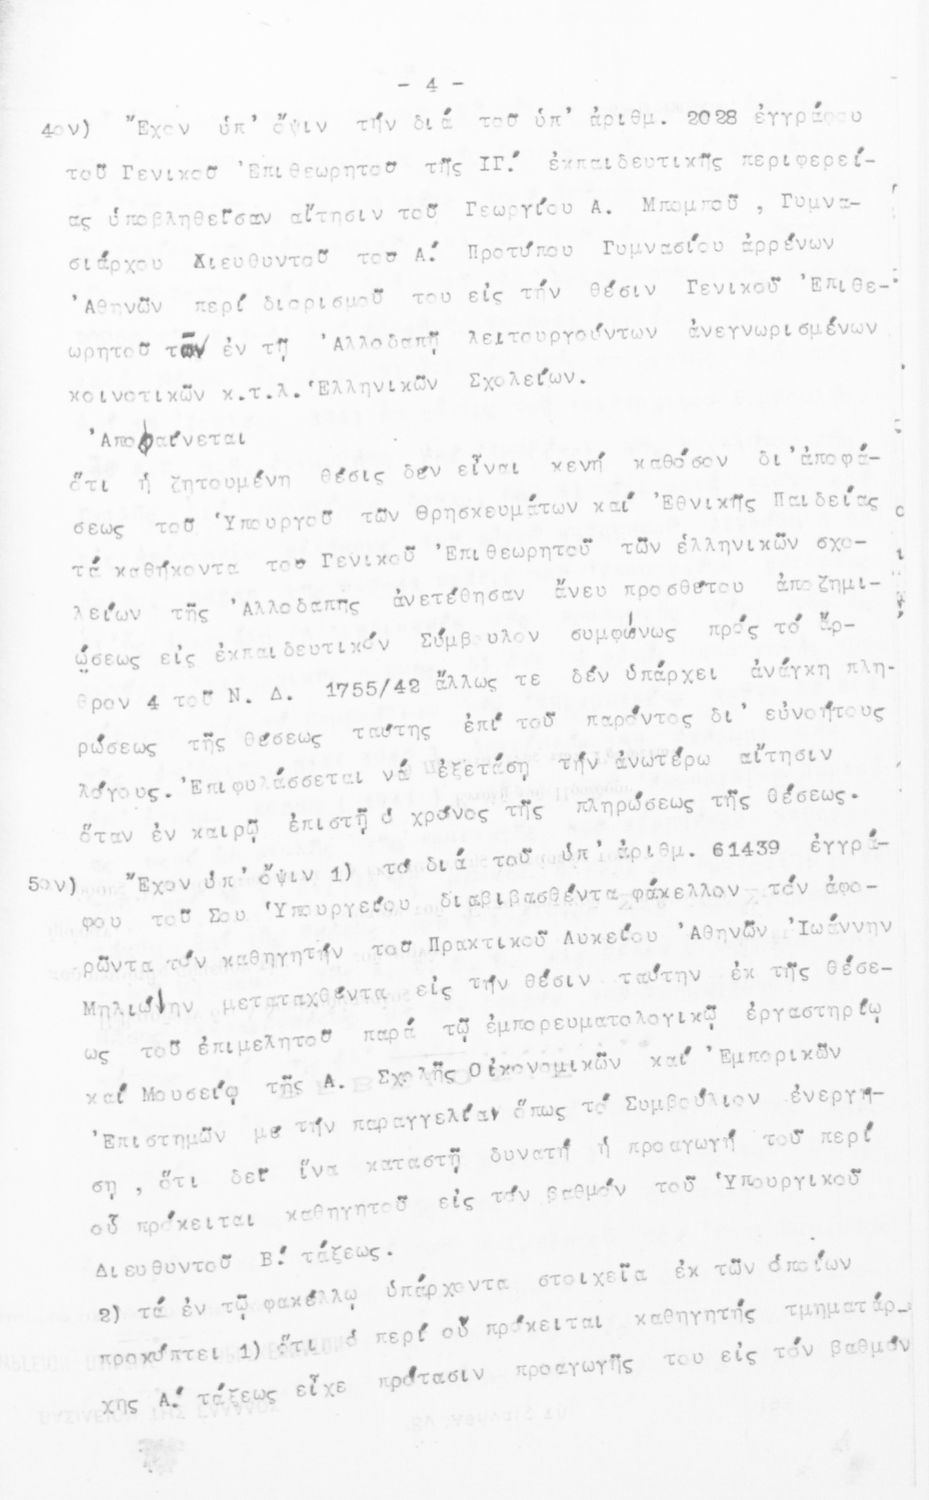 - 4 -
4ον) Ἔχον ὑπ' ὄψιν τήν διά τοῦ ὑπ' ἀριθμ. 2028 ἐγγράφου
τοῦ Γενικοῦ Ἐπιθεωρητοῦ τῆς ΙΓ΄ ἐκπαιδευτικῆς περιφερεί-
ας ὑποβληθεῖσαν αἴτησιν τοῦ Γεωργίου Α. Μπομποῦ, Γυμνα-
σιάρχου Διευθυντοῦ του Α΄ Προτύπου Γυμνασίου ἀρρένων
Ἀθηνῶν περί διορισμοῦ του εἰς τήν θέσιν Γενικοῦ Ἐπιθε-
ωρητοῦ τῶν ἐν τῇ Ἀλλοδαπῇ λειτουργούντων ἀνεγνωρισμένων
κοινοτικῶν κ.τ.λ. Ἑλληνικῶν Σχολείων.
Ἀποφαίνεται
ὅτι ἡ ζητουμένη θέσις δέν εἶναι κενή καθόσον δι' ἀποφά-
σεως τοῦ Ὑπουργοῦ τῶν Θρησκευμάτων καί Ἐθνικῆς Παιδείας
τά καθήκοντα του Γενικοῦ Ἐπιθεωρητοῦ τῶν ἑλληνικῶν σχο-
λείων τῆς Ἀλλοδαπῆς ἀνετέθησαν ἄνευ προσθέτου ἀποζημι-
ώσεως εἰς ἐκπαιδευτικόν Σύμβουλον συμφώνως πρός τό ἄρ-
θρον 4 τοῦ Ν. Δ. 1755/42 ἄλλως τε δέν ὑπάρχει ἀνάγκη πλη-
ρώσεως τῆς θέσεως ταύτης ἐπί τοῦ παρόντος δι' εὐνοήτους
λόγους. Ἐπιφυλάσσεται νά ἐξετάσῃ τήν ἀνωτέρω αἴτησιν
ὅταν ἐν καιρῷ ἐπιστῇ ὁ χρόνος τῆς πληρώσεως τῆς θέσεως.
5ον) Ἔχον ὑπ' ὄψιν 1) τό διά τοῦ ὑπ' ἀριθμ. 61439 ἐγγρά-
φου τοῦ Σου Ὑπουργείου διαβιβασθέντα φάκελλον τόν ἀφο-
ρῶντα τόν καθηγητήν τοῦ Πρακτικοῦ Λυκείου Ἀθηνῶν Ἰωάννην
Μηλιώνην μεταταχθέντα εἰς τήν θέσιν ταύτην ἐκ τῆς θέσε-
ως τοῦ ἐπιμελητοῦ παρά τῷ ἐμπορευματολογικῷ ἐργαστηρίῳ
καί Μουσείῳ τῆς Α. Σχολῆς Οἰκονομικῶν καί Ἐμπορικῶν
Ἐπιστημῶν με τήν παραγγελίαν ὅπως τό Συμβούλιον ἐνεργή-
σῃ, ὅτι δεῖ ἵνα καταστῇ δυνατή ἡ προαγωγή τοῦ περί
οὗ πρόκειται καθηγητοῦ εἰς τόν βαθμόν τοῦ Ὑπουργικοῦ
Διευθυντοῦ Β΄ τάξεως.
2) τά ἐν τῷ φακέλλῳ ὑπάρχοντα στοιχεῖα ἐκ τῶν ὁποίων
προκύπτει 1) ὅτι ὁ περί οὗ πρόκειται καθηγητής τμηματάρ-
χης Α΄ τάξεως εἶχε πρότασιν προαγωγῆς του εἰς τόν βαθμόν